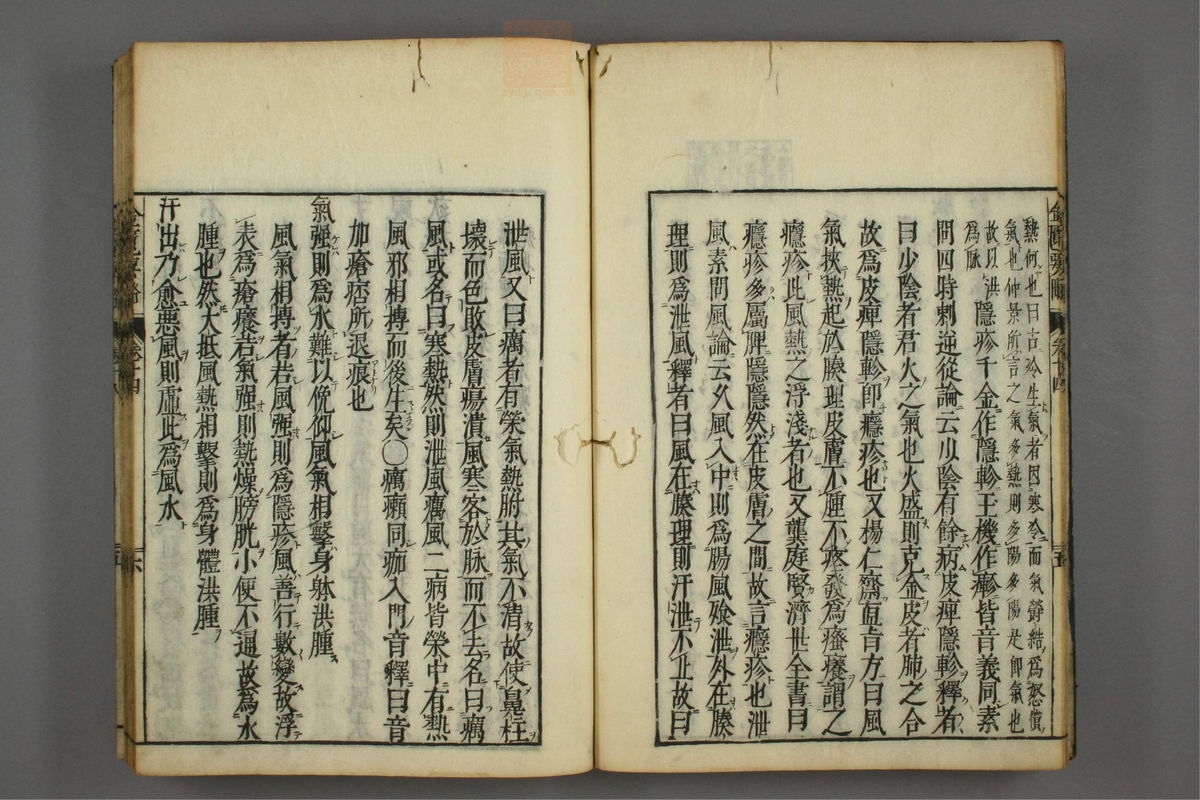 熱何也曰古冷生氣者因寒冷而氣欝結爲怒憤
氣也仲景所言之氣多熱則多陽多陽是即氣也
故以洪
爲脉
隱疹千金作隱軫王機作癮皆音義同素
問四時刺逆從論云少陰有餘病皮痺隱軫釋者
曰少陰者君火之氣也火盛則克金皮者肺之合
故爲皮痺隱軫即癮疹也又楊仁齋直指方曰風
氣挾熱起於腠理皮膚不腫不疼發爲瘙癢謂之
癮疹此風熱之浮淺者也又龔庭賢濟世全書曰
癮疹多屬脾隱隱然在皮膚之間故言癮疹也泄
風素問風論云久風入中則爲腸風飧泄外在腠
理則爲泄風釋者曰風在腠理則汗泄不止故曰
泄風又曰癘者有榮氣熱胕其氣不清故使鼻柱
壞而色敗皮膚瘍潰風寒客於脉而不去名曰癘
風或名曰寒熱然則泄風癘風二病皆榮中有熱
風邪相搏而後生矣○癘癩同痂入門音釋曰音
加瘡痞所退痕也
氣强則爲水難以俛仰風氣相擊身躰洪腫
風氣相搏者若風强則爲隱疹風善行數變故浮
表爲瘡癢若氣强則熱燥膀胱小便不通故爲水
腫也然大抵風熱相擊則爲身體洪腫
汗出乃愈悪風則虛此爲風水